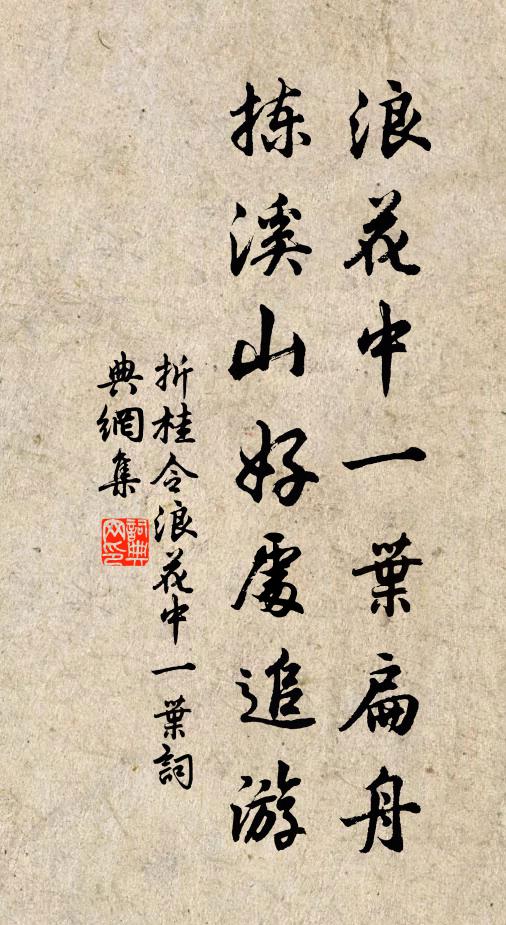 浪花中一葉扁舟
拣溪山好處追游
折桂令浪花中一葉詞
典網集
詞典
网印